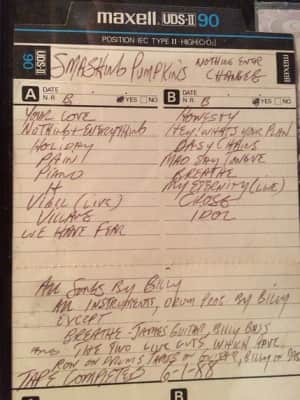 maxell. UDS-II 90
POSITION IEC TYPE II · HIGH(CrO₂)
UDS-II 90
SMASHING PUMPKINS NOTHING EVER
CHANGES
maxell
A DATE
N.R. B YES NO
B DATE
N.R. B YES NO
YOUR LOVE
NOTHING + EVERYTHING
HOLIDAY
PAIN
PIANO
IT
VIGIL (LIVE)
VILLAGE
WE HAVE FEAR
HONESTY
HEY, WHAT'S YOUR PLAN
DAISY CHAINS
MAD SAY I ABOVE
BREATHE
MY ETERNITY (LIVE)
CROSS
IDOL
ALL SONGS BY BILLY
ALL INSTRUMENTS, DRUM PROG. BY BILLY
EXCEPT
BREATHE JAMES GUITAR, BILLY BASS
AND THE TWO LIVE CUTS WHICH HAVE
RON ON DRUMS JAMES ON GUITAR, BILLY ON
TAPE COMPLETED 6-1-88
B